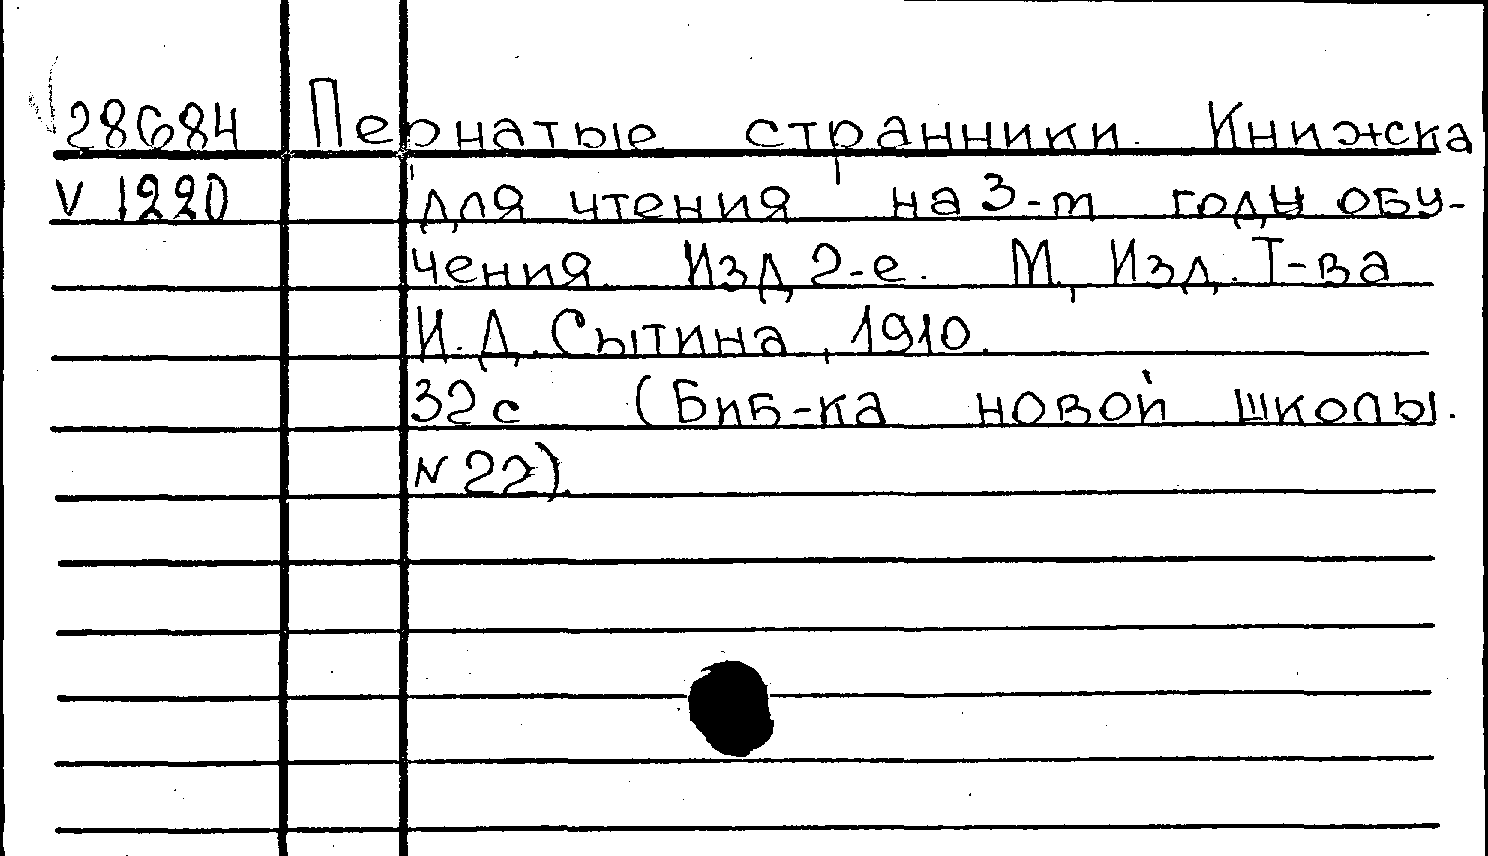 28684 Пернатые странники. Книжска
V 1220 для чтения на 3-т году обу-
чения. Изд 2-е. М, Изд. Т-ва
И.Д. Сытина, 1910.
32с (Биб-ка новой школы.
N 22).